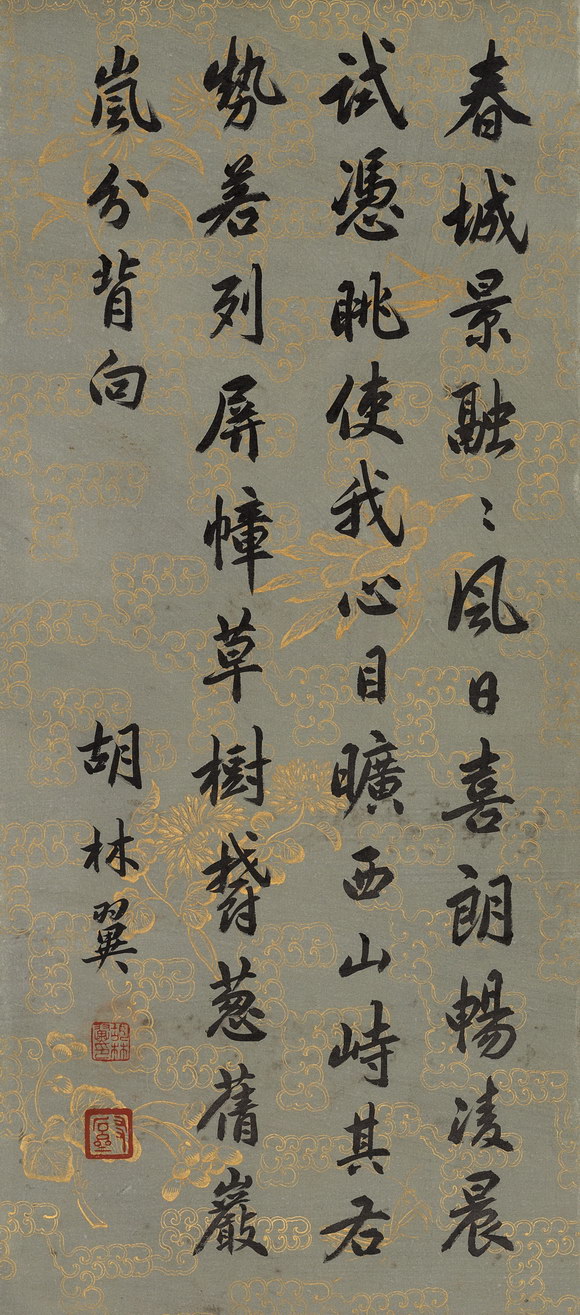 春城景融〻風日喜朗暢凌晨
試憑眺使我心目曠西山峙其右
勢若列屏幛草樹鬱蔥蒨巖
嵐分背向
胡林翼